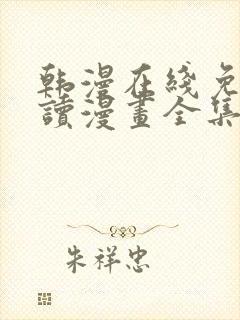 韩漫在线免
讀漫畫全集
朱祥忠